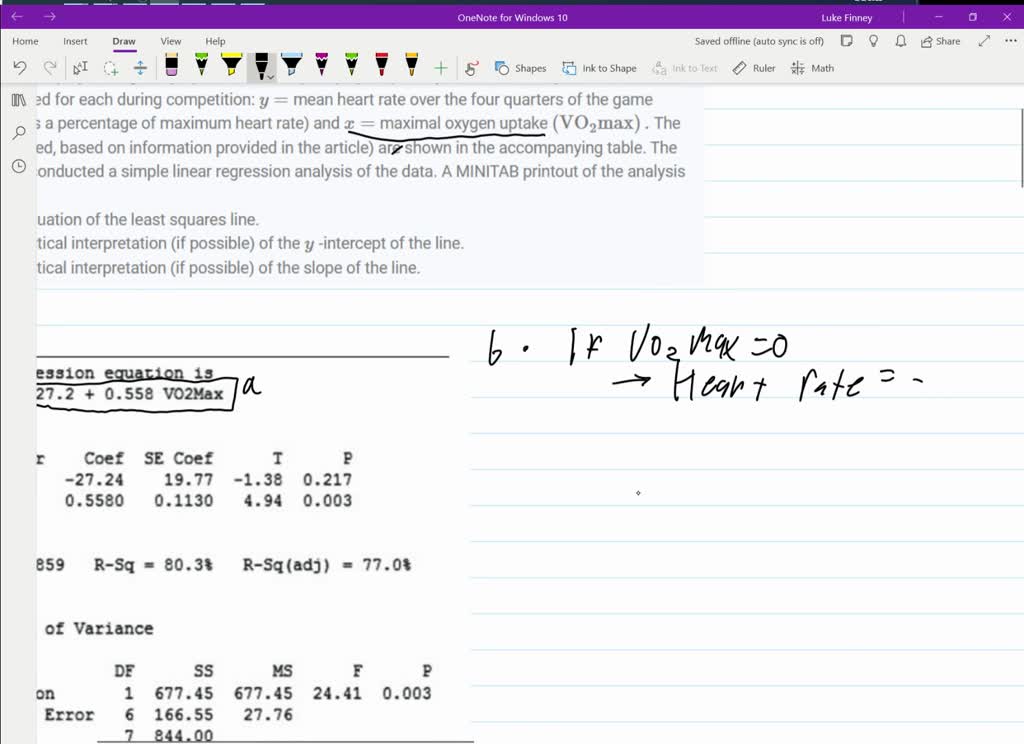 OneNote for Windows 10
Luke Finney
Home Insert Draw View Help
Saved offline (auto sync is off)
Share
Shapes Ink to Shape Ink to Text Ruler Math
ed for each during competition: y = mean heart rate over the four quarters of the game
s a percentage of maximum heart rate) and x = maximal oxygen uptake (VO₂max). The
ed, based on information provided in the article) are shown in the accompanying table. The
conducted a simple linear regression analysis of the data. A MINITAB printout of the analysis
uation of the least squares line.
tical interpretation (if possible) of the y -intercept of the line.
tical interpretation (if possible) of the slope of the line.
b. If VO₂ Max = 0
→ Heart rate = -
ession equation is
27.2 + 0.558 VO2Max a
r Coef SE Coef T P
-27.24 19.77 -1.38 0.217
0.5580 0.1130 4.94 0.003
859 R-Sq = 80.3% R-Sq(adj) = 77.0%
of Variance
DF SS MS F P
on 1 677.45 677.45 24.41 0.003
Error 6 166.55 27.76
7 844.00